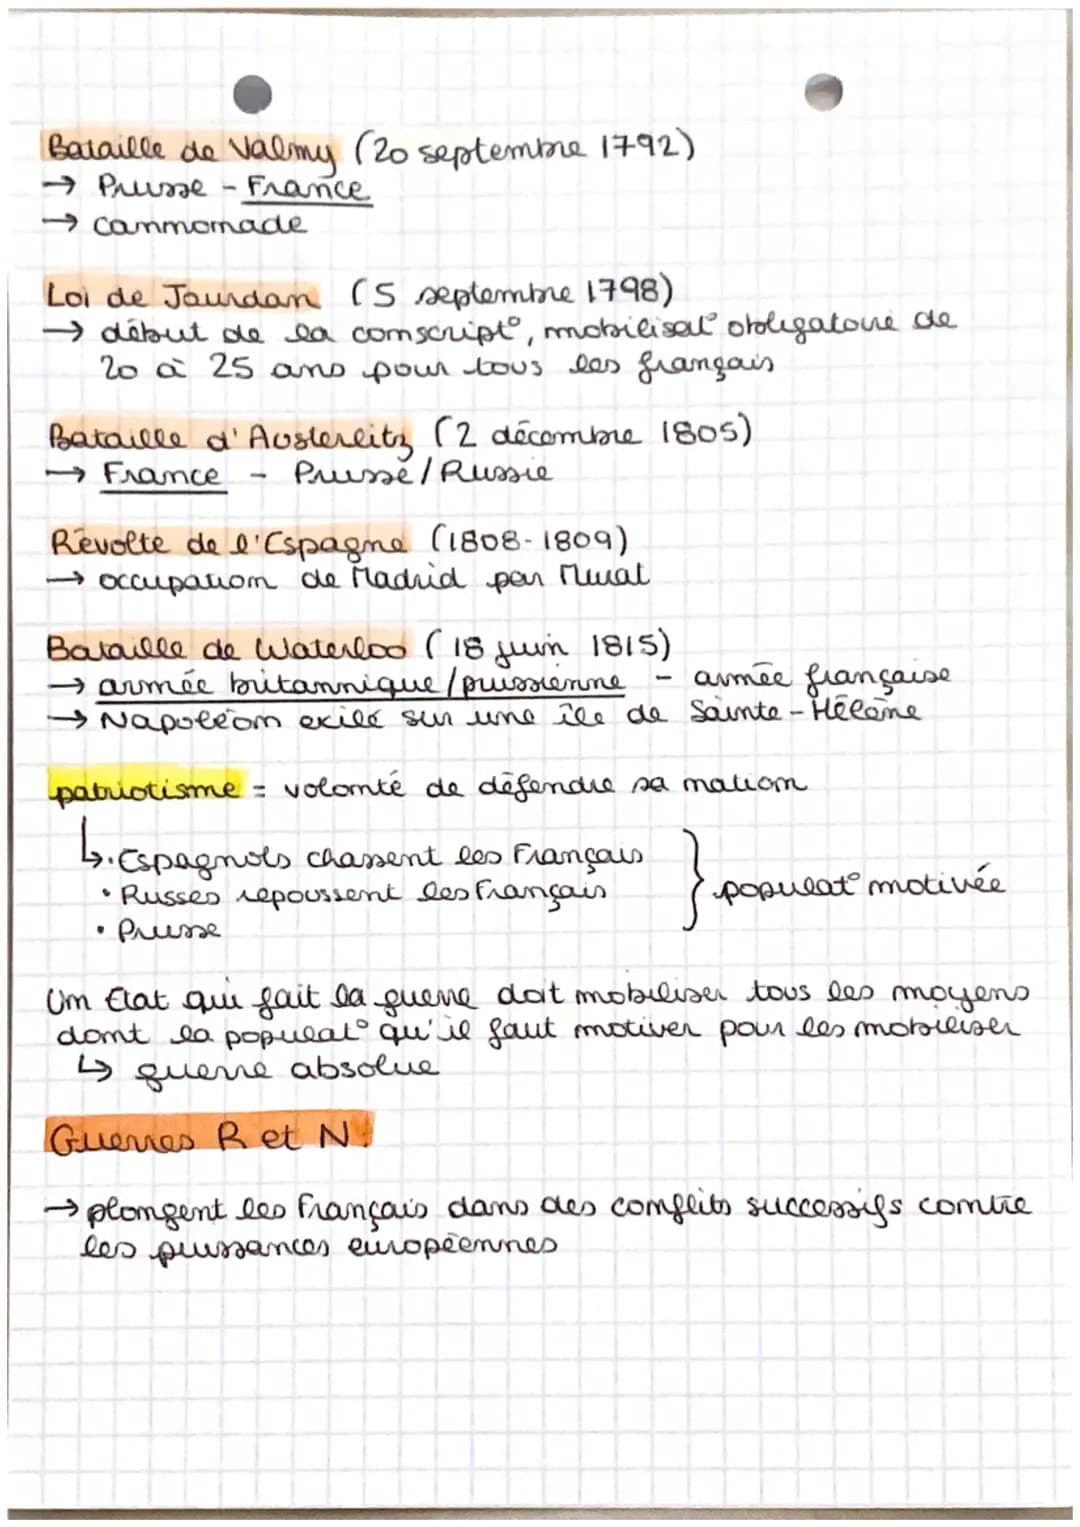 Bataille de Valmy (20 septembre 1792)
→ Prusse - France
→ cannonade
Loi de Jourdan (5 septembre 1798)
→ début de la conscript°, mobilisat° obligatoire de
20 à 25 ans pour tous les français
Bataille d'Austerlitz (2 décembre 1805)
→ France - Prusse/Russie
Révolte de l'Espagne (1808-1809)
→ occupation de Madrid par Murat
Bataille de Waterloo (18 juin 1815)
→ armée britannique/prussienne - armée française
→ Napoléon exilé sur une île de Sainte-Hélène
patriotisme = volonté de défendre sa nation
↳ • Espagnols chassent les Français
• Russes repoussent les Français } populat° motivée
• Prusse
Un Etat qui fait la guerre doit mobiliser tous les moyens
dont la populat° qu'il faut motiver pour les mobiliser
↳ guerre absolue
Guerres R et N:
→ plongent les Français dans des conflits successifs contre
les puissances européennes